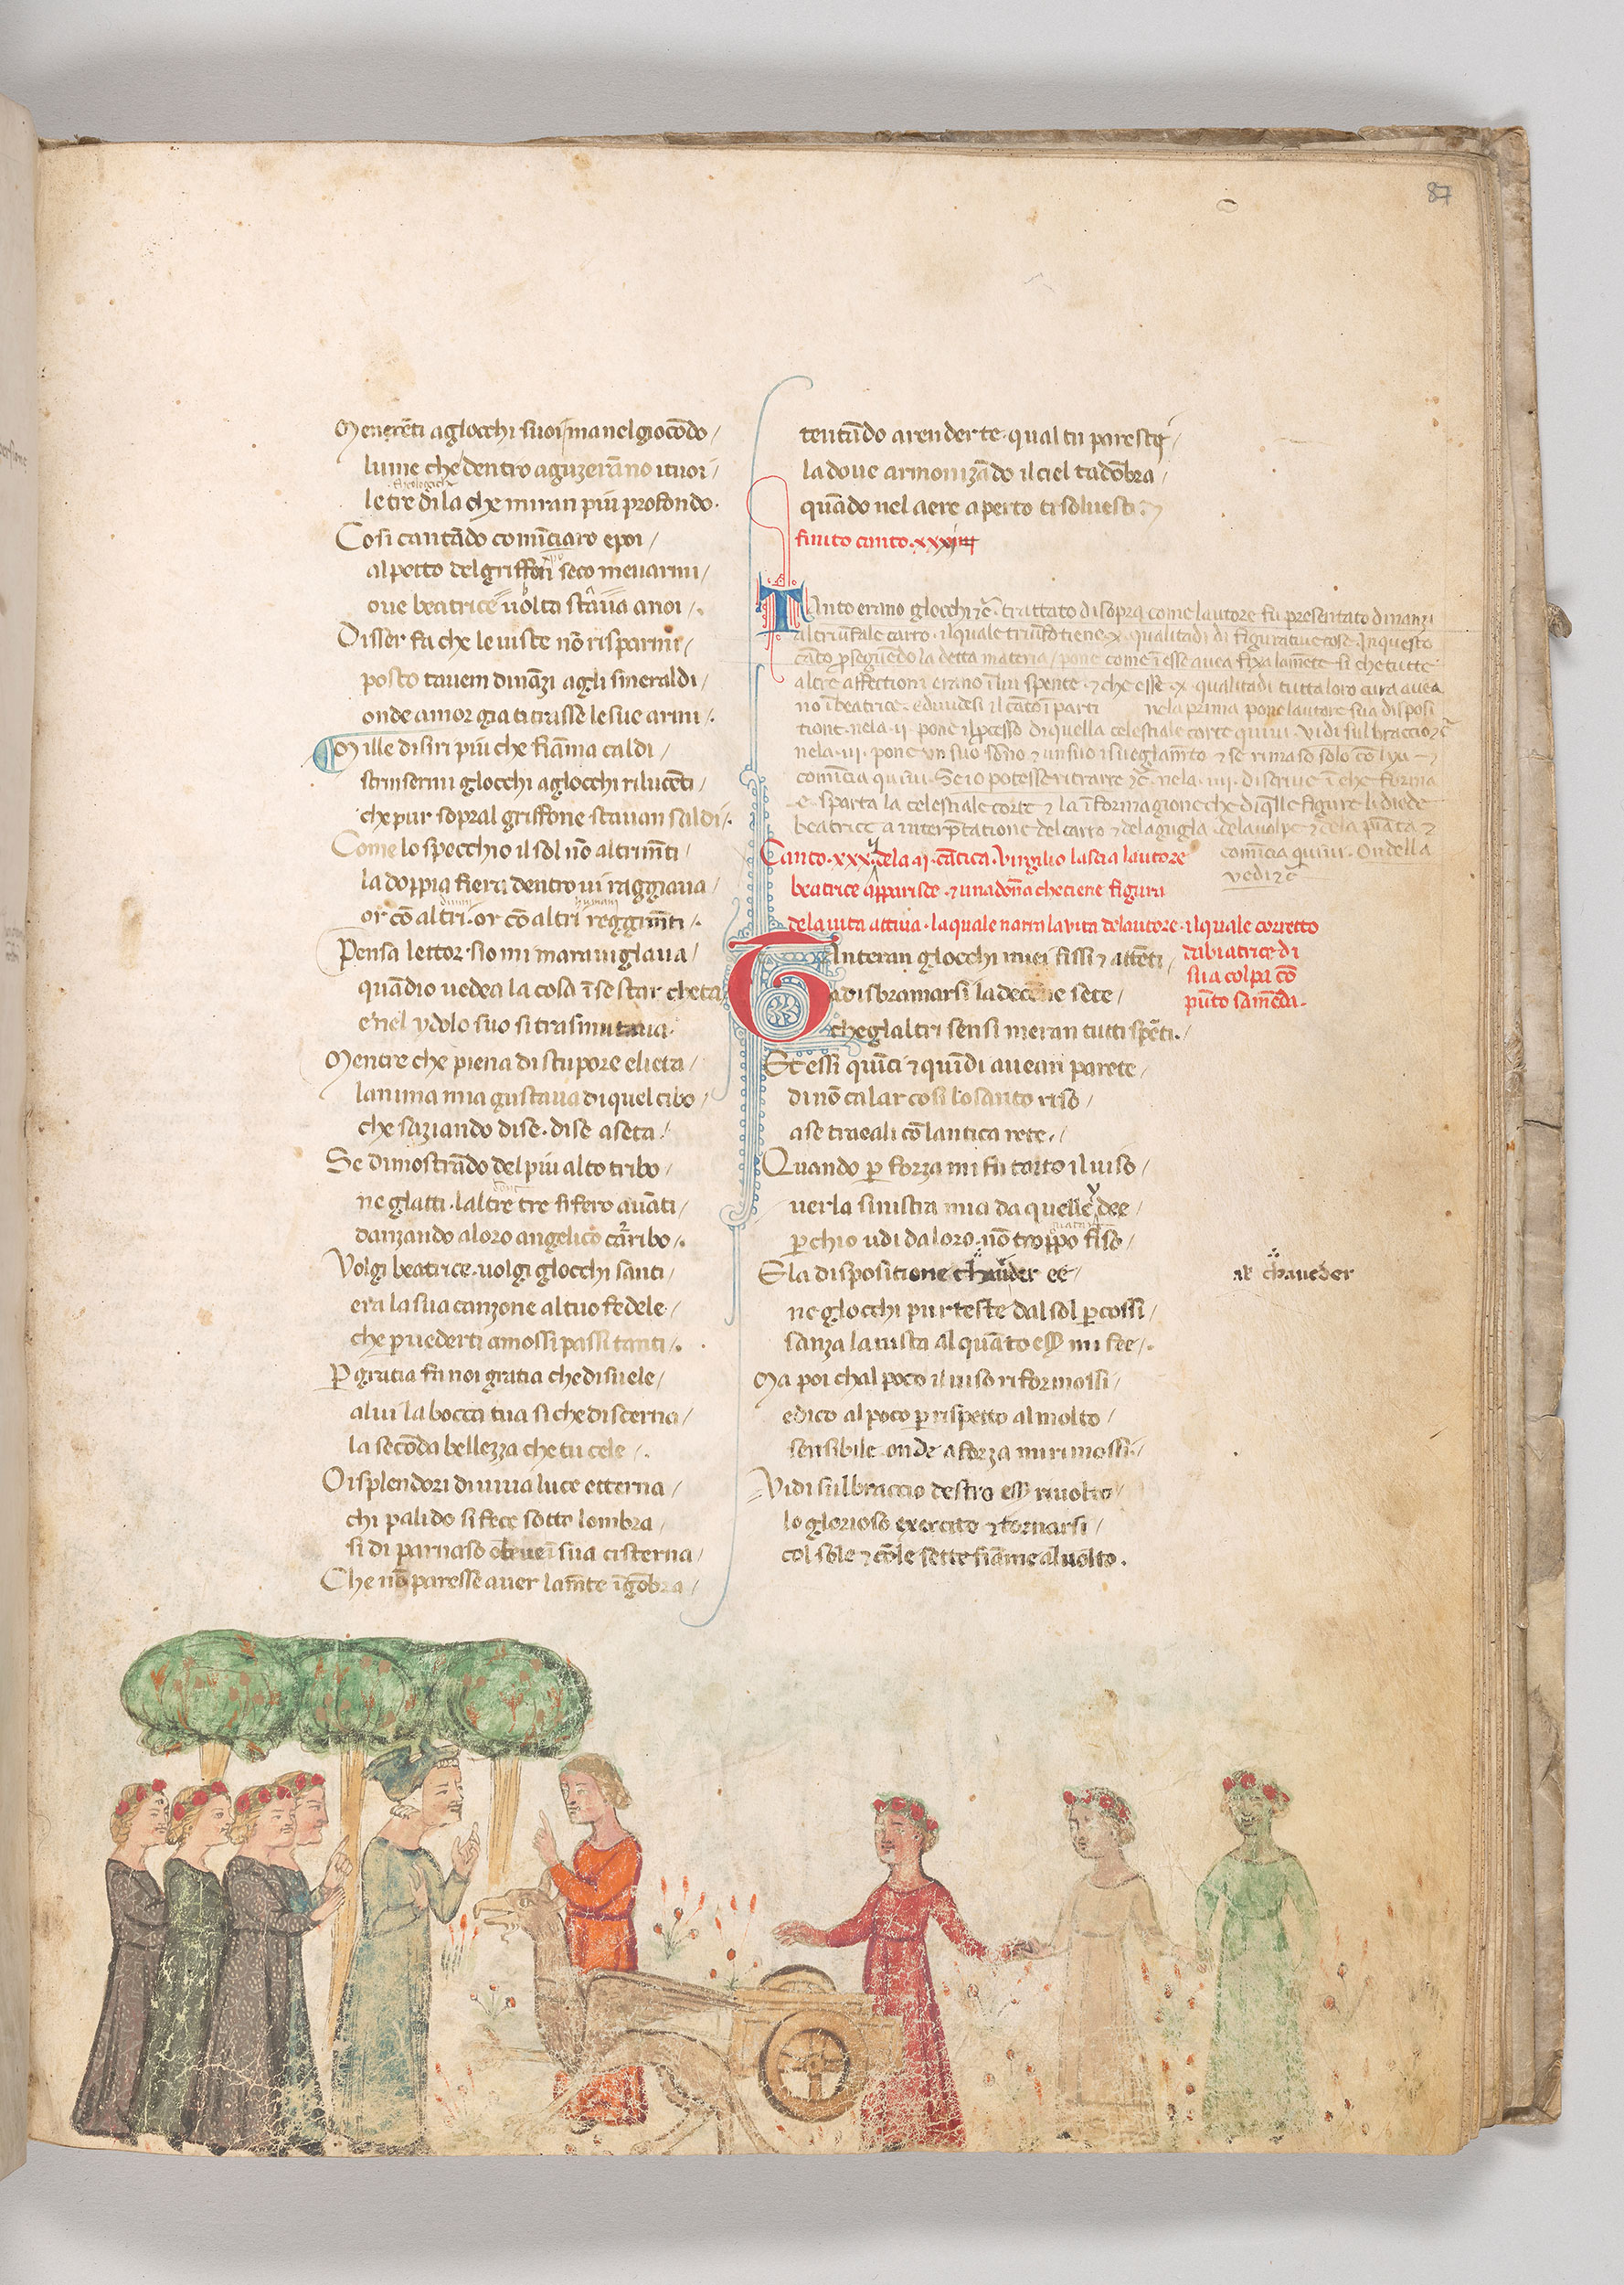 87
Menerēti aglocchi suoi ma nel giocōdo
lume che dentro aguzerāno ituoi
le tre di la che miran più profondo.
Cosi cantādo comīciaro epoi
al petto del griffon seco menarmi
oue beatrice uolta staua anoi
Disser fa che le uiste nō risparmi
posto tauem dināzi agli smeraldi
onde amor gia ti trasse le sue armi
Mille disiri più che fiāma caldi
strinsermi glocchi aglocchi rilucēti
che pur sopral griffone stauan saldi
Come lo specchio il sol nō altrimēti
la doppia fiera dentro ui raggiaua
or cō altri or cō altri reggimēti
Pensa lettor sio mi marauiglaua
quādio uedea la cosa ī se star cheta
e nel ydolo suo si trasmutaua
Mentre che piena di stupore elieta
lanima mia gustaua di quel cibo
che saziando di se di se aseta
Se dimostrādo del più alto tribo
ne glatti laltre tre si fero auāti
danzando aloro angelico caribo
Volgi beatrice uolgi glocchi santi
era la sua canzone al tuo fedele
che p uederti amossi passi tanti
P gratia fa noi gratia che disuele
alui la bocca tua si che discerna
la secōda bellezza che tu cele
O isplendori di uiua luce etterna
chi palido si fece sotto lombra
si di parnaso o beue ī sua cisterna
Che nō paresse auer la mēte īgōbra
tentādo arender te qual tu paresti
la doue armonizādo il ciel tadōbra
quādo nel aere aperto ti soluesti
finito canto xxxi
Tanto erano glocchi ⁊c̄. trattato di sopra come lautore fu presentato dinanzi
al triūfale carro
cāto p̄seguēdo la detta materia pone come
altre affectioni erano ī lui spente ⁊ che esse
no ī beatrice ediuidesi il cāto ī parti nela prima pone lautore sua disposi
tione nela ii pone il p̄cesso di quella celestiale corte quiui Vidi sul braccio ⁊c̄
nela iii pone un suo sōno ⁊ un suo isueglamēto ⁊ se rimaso solo cō
comīcia quiui Se io potesse ritrarre ⁊c̄ nela iiii discriue ī che forma
e sparta la celestiale corte ⁊ la īformagione che di q̄lle figure li diede
beatrice a interp̄tatione del carro ⁊ de la
comīcia quiui O nella
vedi ⁊c̄
Canto xxxij dela ij cātica Virgilio lascia lautore
beatrice apparisce ⁊ una dōna che tiene figura
dela uita attiua la quale narra la uita delautore ilquale corretto
da biatrice di
sua colpa cō
pūto samēda
Tanteran glocchi miei fissi ⁊ attēti
adisbramarsi la decēne sete
che gl altri sensi meran tutti spēti
Et essi quīci ⁊ quīdi auean parete
di nō calar cosi lo santo riso
ase traeali cō lantica rete
Quando p forza mi fu torto il uiso
uer la sinistra mia da quelle dee
p chio udi da loro nō troppo fiso
E la dispositione cha ueder ee
cha ueder
ne glocchi pur teste dal sol p̄cossi
sanza la uista alquāto esser mi fee
Ma poi chal poco il uiso riformossi
e dico al poco p rispetto al molto
sensibile onde a forza mi rimossi
Vidi sul braccio destro esser riuolto
lo glorioso exercito ⁊ tornarsi
col sole ⁊ cō le sette fiāme al uolto